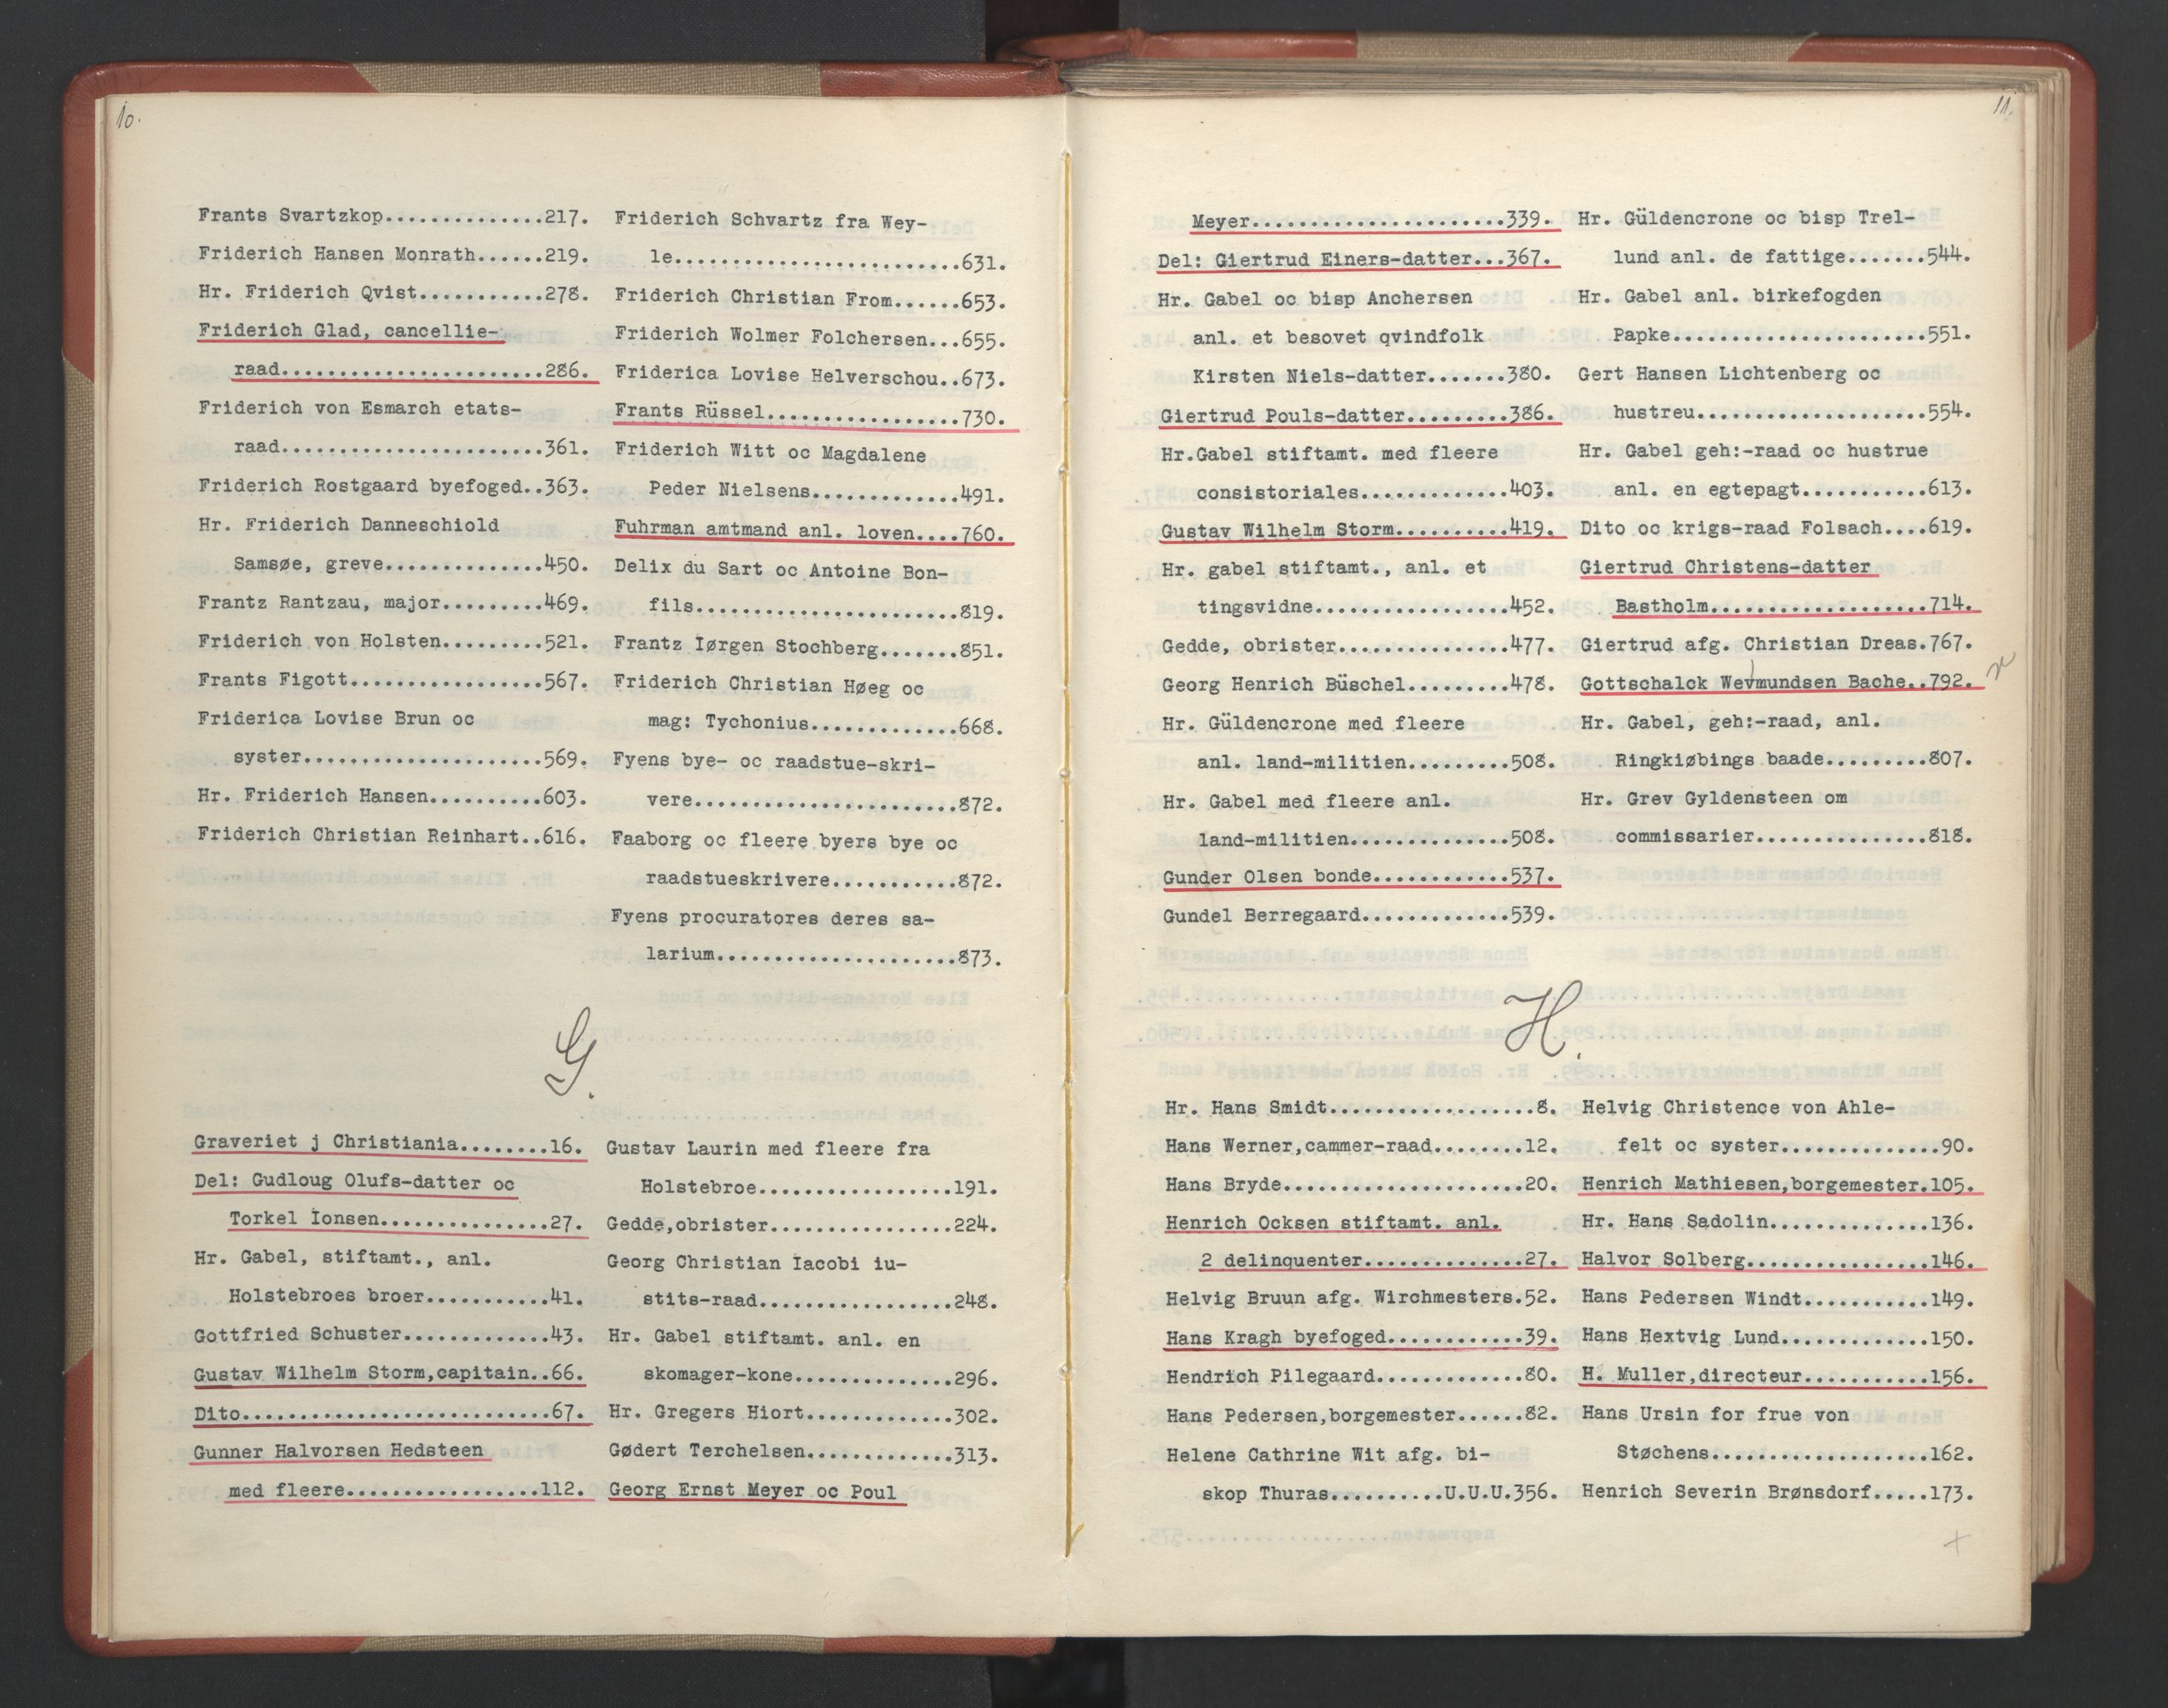 10.
Frants Svartzkop..............217.
Friderich Hansen Monrath......219.
Hr. Friderich Qvist...........278.
Friderich Glad, cancellie-
raad.......................286.
Friderich von Esmarch etats-
raad.......................361.
Friderich Rostgaard byefoged..363.
Hr. Friderich Danneschiold
Samsøe, greve..............450.
Frantz Rantzau, major.........469.
Friderich von Holsten.........521.
Frants Figott.................567.
Friderica Lovise Brun oc
syster.....................569.
Hr. Friderich Hansen..........603.
Friderich Christian Reinhart..616.
Friderich Schvartz fra Wey-
le.........................631.
Friderich Christian From......653.
Friderich Wolmer Folchersen...655.
Friderica Lovise Helverschou..673.
Frants Rüssel.................730.
Friderich Witt oc Magdalene
Peder Nielsens.............491.
Fuhrman amtmand anl. loven....760.
Delix du Sart oc Antoine Bon-
fils.......................819.
Frantz Iørgen Stochberg.......851.
Friderich Christian Høeg oc
mag: Tychonius.............668.
Fyens bye- oc raadstue-skri-
vere.......................872.
Faaborg oc fleere byers bye oc
raadstueskrivere...........872.
Fyens procuratores deres sa-
larium.....................873.
G.
Graveriet j Christiania........16.
Del: Gudloug Olufs-datter oc
Torkel Ionsen...............27.
Hr. Gabel, stiftamt., anl.
Holstebroes broer...........41.
Gottfried Schuster.............43.
Gustav Wilhelm Storm,capitain..66.
Dito...........................67.
Gunner Halvorsen Hedsteen
med fleere.................112.
Gustav Laurin med fleere fra
Holstebroe.................191.
Gedde,obrister................224.
Georg Christian Iacobi iu-
stits-raad.................248.
Hr. Gabel stiftamt. anl. en
skomager-kone..............296.
Hr. Gregers Hiort.............302.
Gødert Terchelsen.............313.
Georg Ernst Meyer oc Poul
11.
Meyer......................339.
Del: Giertrud Einers-datter...367.
Hr. Gabel oc bisp Anchersen
anl. et besovet qvindfolk
Kirsten Niels-datter.......380.
Giertrud Pouls-datter.........386.
Hr.Gabel stiftamt. med fleere
consistoriales.............403.
Gustav Wilhelm Storm..........419.
Hr. gabel stiftamt., anl. et
tingsvidne.................452.
Gedde, obrister...............477.
Georg Henrich Büschel.........478.
Hr. Güldencrone med fleere
anl. land-militien.........508.
Hr. Gabel med fleere anl.
land-militien..............508.
Gunder Olsen bonde............537.
Gundel Berregaard.............539.
Hr. Güldencrone oc bisp Trel-
lund anl. de fattige.......544.
Hr. Gabel anl. birkefogden
Papke......................551.
Gert Hansen Lichtenberg oc
hustreu....................554.
Hr. Gabel geh:-raad oc hustrue
anl. en egtepagt...........613.
Dito oc krigs-raad Folsach....619.
Giertrud Christens-datter
Bastholm...................714.
Giertrud afg. Christian Dreas.767.
Gottschalck Wevmundsen Bache..792.
Hr. Gabel, geh:-raad, anl.
Ringkiøbings baade.........807.
Hr. Grev Gyldensteen om
commissarier...............818.
H.
Hr. Hans Smidt..................8.
Hans Werner,cammer-raad........12.
Hans Bryde.....................20.
Henrich Ocksen stiftamt. anl.
2 delinquenter..............27.
Helvig Bruun afg. Wirchmesters.52.
Hans Kragh byefoged............39.
Hendrich Pilegaard.............80.
Hans Pedersen,borgemester......82.
Helene Cathrine Wit afg. bi-
skop Thuras..........U.U.U.356.
Helvig Christence von Ahle-
felt oc syster..............90.
Henrich Mathiesen,borgemester.105.
Hr. Hans Sadolin..............136.
Halvor Solberg................146.
Hans Pedersen Windt...........149.
Hans Hextvig Lund.............150.
H. Muller,directeur...........156.
Hans Ursin for frue von
Støchens...................162.
Henrich Severin Brønsdorf.....173.